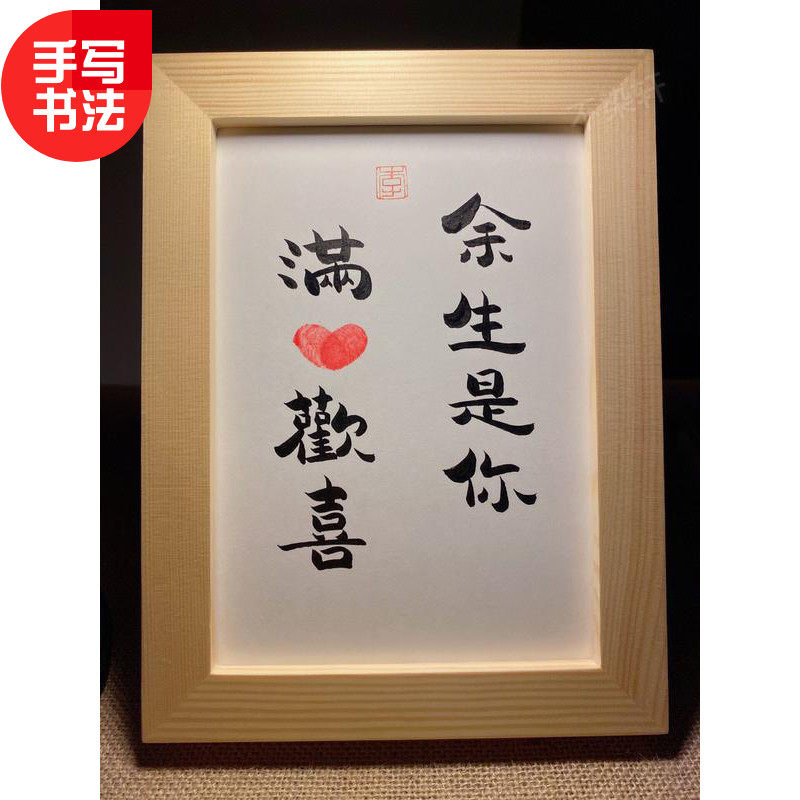 手写
书法
余生是你
滿歡喜